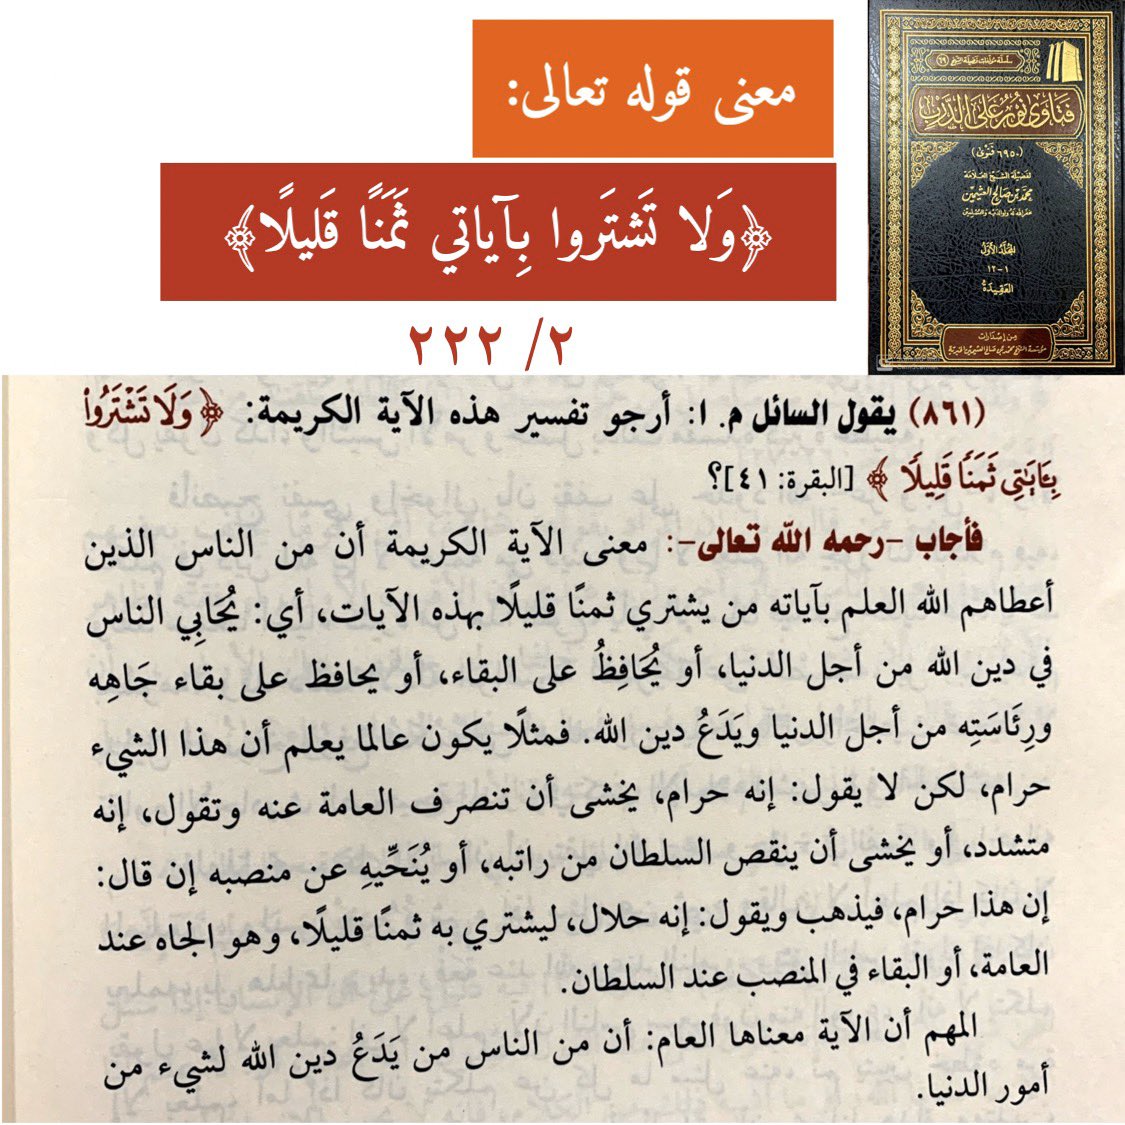 معنى قوله تعالى:
﴿وَلا تَشتَروا بِآياتي ثَمَنًا قَليلًا﴾
٢/ ٢٢٢
سلسلة مؤلفات فضيلة الشيخ (٦٩)
فتاوى نور على الدرب
(٦٩٥٠ فتوى)
لفضيلة الشيخ العلامة
محمد بن صالح العثيمين
غفر الله له ولوالديه وللمسلمين
المجلد الأول
١-١٢
العقيدة
من إصدارات
مؤسسة الشيخ محمد بن صالح العثيمين الخيرية
(٨٦١) يقول السائل م. ا: أرجو تفسير هذه الآية الكريمة: ﴿وَلَا تَشْتَرُوا۟
بِـَٔايَـٰتِى ثَمَنًا قَلِيلًا﴾ [البقرة: ٤١]؟
فأجاب -رحمه الله تعالى-: معنى الآية الكريمة أن من الناس الذين
أعطاهم الله العلم بآياته من يشتري ثمنًا قليلًا بهذه الآيات، أي: يُحَابِي الناس
في دين الله من أجل الدنيا، أو يُحَافِظُ على البقاء، أو يحافظ على بقاء جَاهِه
ورِئَاسَتِه من أجل الدنيا ويَدَعُ دين الله. فمثلًا يكون عالما يعلم أن هذا الشيء
حرام، لكن لا يقول: إنه حرام، يخشى أن تنصرف العامة عنه وتقول، إنه
متشدد، أو يخشى أن ينقص السلطان من راتبه، أو يُنَحِّيهِ عن منصبه إن قال:
إن هذا حرام، فيذهب ويقول: إنه حلال، ليشتري به ثمنًا قليلًا، وهو الجاه عند
العامة، أو البقاء في المنصب عند السلطان.
المهم أن الآية معناها العام: أن من الناس من يَدَعُ دين الله لشيء من
أمور الدنيا.